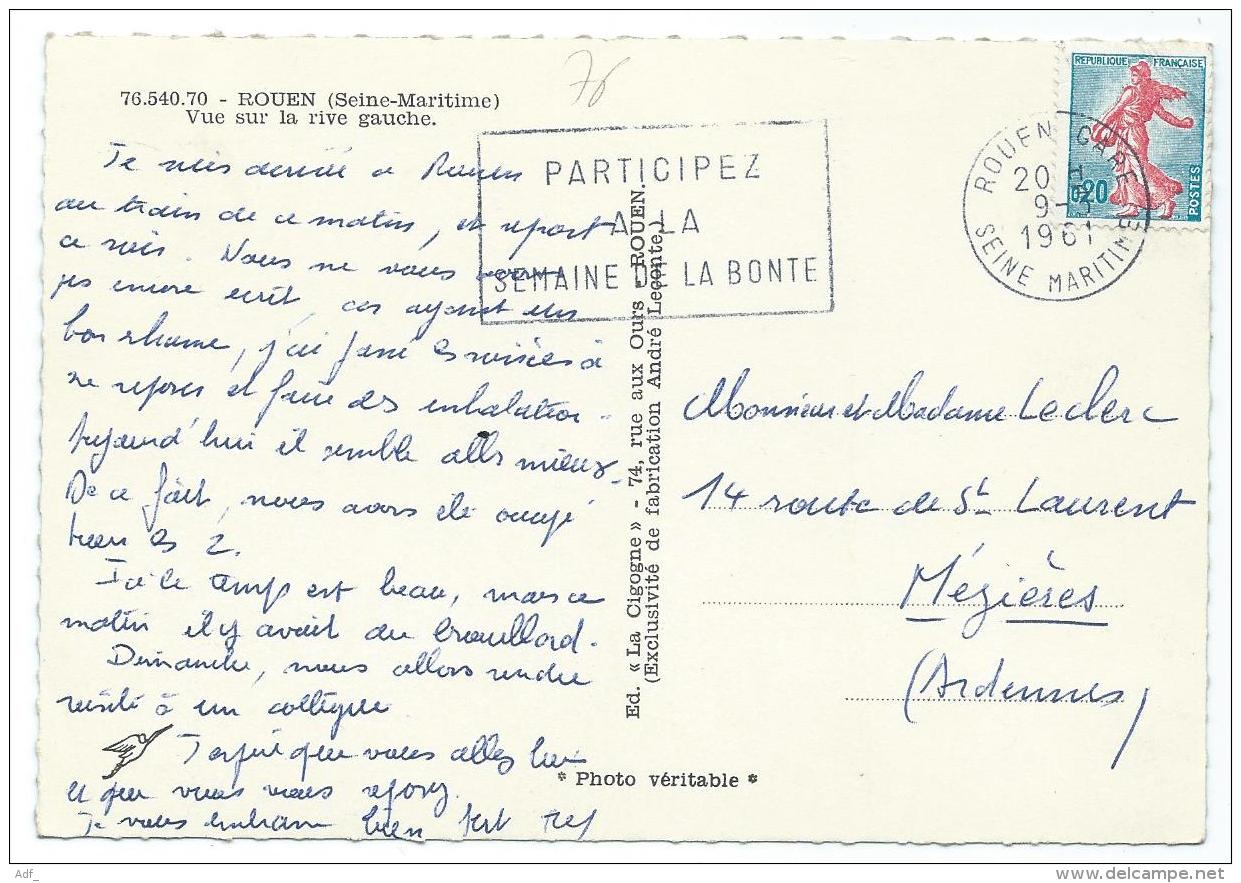 76.540.70 - ROUEN (Seine-Maritime)
Vue sur la rive gauche.
76
PARTICIPEZ
A LA
SEMAINE DE LA BONTE
REPUBLIQUE FRANÇAISE
0,20
POSTES
ROUEN GARE
20 H
9-3
1961
SEINE MARITIME
Je suis à Rouen
au train de ce matin, et repart
ce soir. Nous ne vous avons
pas encore écrit, car ayant un
bon rhume, j'ai passé les soirées à
me reposer et faire des inhalations.
Aujourd'hui il semble aller mieux.
De ce fait, nous avons été occupé
tous les 2.
Ici le temps est beau, mais ce
matin il y avait du brouillard.
Dimanche, nous allons rendre
visite à un collègue
J'espère que vous allez bien
et que vous vous reposez.
Je vous embrasse bien fort
Ed. « La Cigogne » - 74, rue aux Ours - ROUEN.
(Exclusivité de fabrication André Leconte)
Monsieur et Madame Leclerc
14 route de St Laurent
Mézières
(Ardennes)
* Photo véritable *
Adf_
delcampe.net